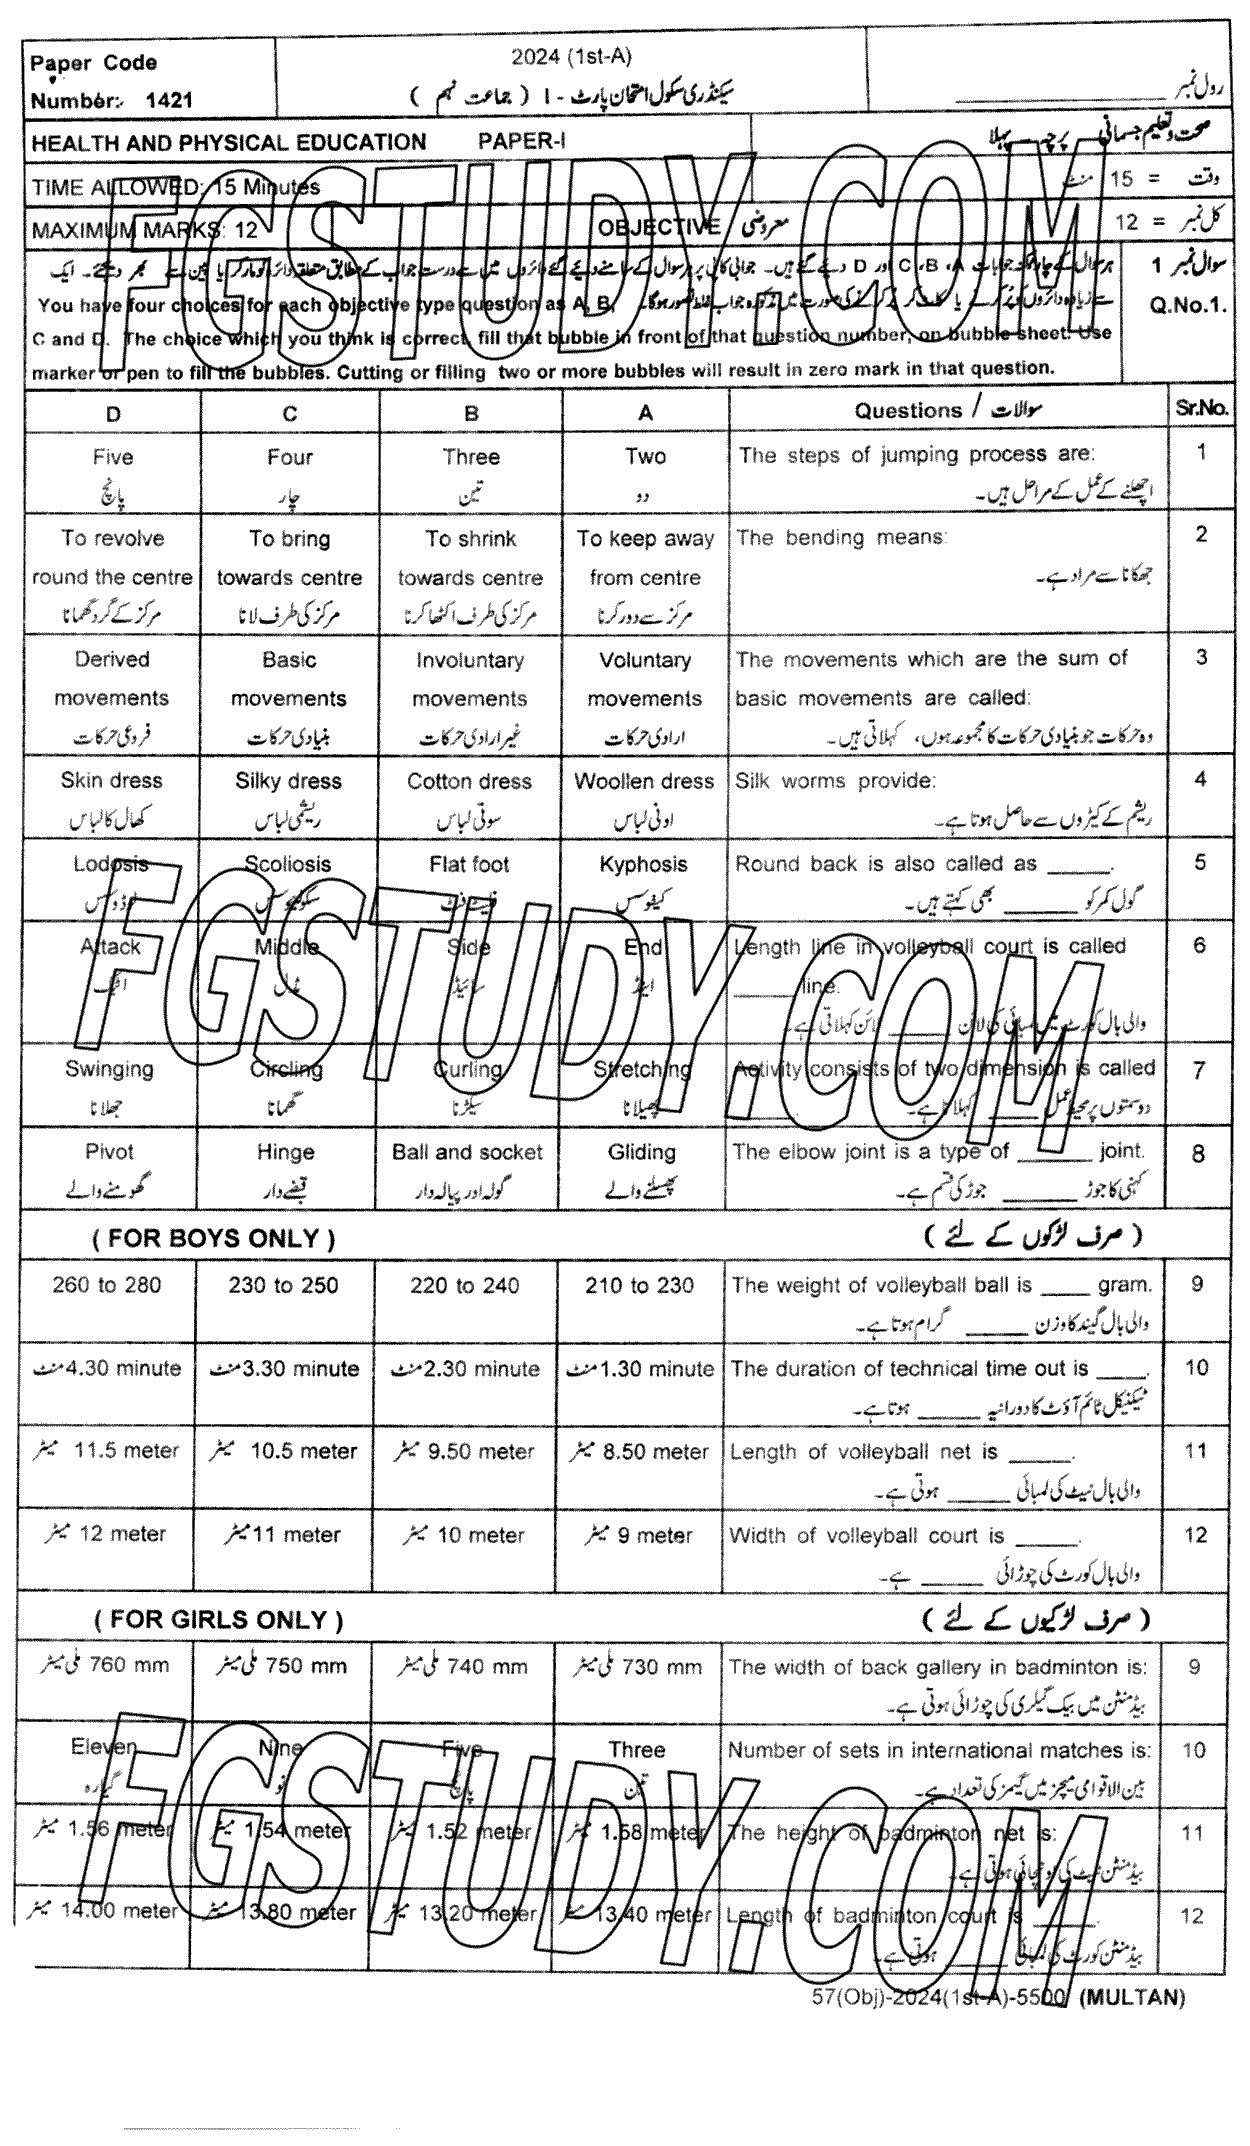 Paper Code
Number: 1421
2024 (1st-A)
سیکنڈری سکول امتحان پارٹ - I ( جماعت نہم )
رول نمبر
HEALTH AND PHYSICAL EDUCATION PAPER-I
صحت و تعلیم جسمانی پرچہ پہلا
TIME ALLOWED: 15 Minutes
وقت = 15 منٹ
MAXIMUM MARKS: 12
OBJECTIVE / معروضی
کل نمبر = 12
سوال نمبر 1
Q.No.1.
ہر سوال کے چار ممکنہ جوابات A، B، C اور D دیئے گئے ہیں۔ جوابی کاپی پر ہر سوال کے سامنے دیئے گئے دائروں میں سے درست جواب کے مطابق متعلقہ دائرہ کو مارکر یا پین سے بھر دیجئے۔ ایک
سے زیادہ دائروں کو پُر کرنے یا کاٹ کر پُر کرنے کی صورت میں مذکورہ جواب غلط تصور ہوگا۔
You have four choices for each objective type question as A, B,
C and D. The choice which you think is correct, fill that bubble in front of that question number, on bubble sheet. Use
marker or pen to fill the bubbles. Cutting or filling two or more bubbles will result in zero mark in that question.
D C B A Questions / سوالات Sr.No.
Five Four Three Two The steps of jumping process are: 1
پانچ چار تین دو اچھلنے کے عمل کے مراحل ہیں۔
To revolve To bring To shrink To keep away The bending means: 2
round the centre towards centre towards centre from centre جھکانا سے مراد ہے۔
مرکز کے گرد گھمانا مرکز کی طرف لانا مرکز کی طرف اکٹھا کرنا مرکز سے دور کرنا
Derived Basic Involuntary Voluntary The movements which are the sum of 3
movements movements movements movements basic movements are called:
فروعی حرکات بنیادی حرکات غیر ارادی حرکات ارادی حرکات وہ حرکات جو بنیادی حرکات کا مجموعہ ہوں، کہلاتی ہیں۔
Skin dress Silky dress Cotton dress Woollen dress Silk worms provide: 4
کھال کا لباس ریشمی لباس سوتی لباس اونی لباس ریشم کے کیڑوں سے حاصل ہوتا ہے۔
Lodosis Scoliosis Flat foot Kyphosis Round back is also called as _____. 5
لوڈوسس سکولیوسس فلیٹ فٹ کیفوسس گول کمر کو ______ بھی کہتے ہیں۔
Attack Middle Side End Length line in volleyball court is called 6
اٹیک مڈل سائیڈ اینڈ _____ line.
والی بال کورٹ میں لمبائی کی لائن _____ لائن کہلاتی ہے۔
Swinging Circling Curling Stretching Activity consists of two dimension is called 7
جھلانا گھمانا سیکڑنا پھیلانا دو سمتوں پر محیط عمل _____ کہلاتا ہے۔
Pivot Hinge Ball and socket Gliding The elbow joint is a type of ______ joint. 8
گھومنے والے قبضے دار گولہ اور پیالہ دار پھسلنے والے کہنی کا جوڑ ______ جوڑ کی قسم ہے۔
( FOR BOYS ONLY ) ( صرف لڑکوں کے لئے )
260 to 280 230 to 250 220 to 240 210 to 230 The weight of volleyball ball is ____ gram. 9
والی بال گیند کا وزن _____ گرام ہوتا ہے۔
4.30 minute منٹ 3.30 minute منٹ 2.30 minute منٹ 1.30 minute منٹ The duration of technical time out is ____. 10
ٹیکنیکل ٹائم آؤٹ کا دورانیہ _____ ہوتا ہے۔
11.5 meter میٹر 10.5 meter میٹر 9.50 meter میٹر 8.50 meter میٹر Length of volleyball net is _____. 11
والی بال نیٹ کی لمبائی _____ ہوتی ہے۔
12 meter میٹر 11 meter میٹر 10 meter میٹر 9 meter میٹر Width of volleyball court is _____. 12
والی بال کورٹ کی چوڑائی _____ ہے۔
( FOR GIRLS ONLY ) ( صرف لڑکیوں کے لئے )
760 mm ملی میٹر 750 mm ملی میٹر 740 mm ملی میٹر 730 mm ملی میٹر The width of back gallery in badminton is: 9
بیڈمنٹن میں بیک گیلری کی چوڑائی ہوتی ہے۔
Eleven Nine Five Three Number of sets in international matches is: 10
گیارہ نو پانچ تین بین الاقوامی میچز میں گیمز کی تعداد ہے۔
1.56 meter میٹر 1.54 meter میٹر 1.52 meter میٹر 1.58 meter میٹر The height of badminton net is: 11
بیڈمنٹن نیٹ کی اونچائی ہوتی ہے۔
14.00 meter میٹر 13.80 meter میٹر 13.20 meter میٹر 13.40 meter میٹر Length of badminton court is _____. 12
بیڈمنٹن کورٹ کی لمبائی _____ ہوتی ہے۔
57(Obj)-2024(1st-A)-5500 (MULTAN)
FGSTUDY.COM
FGSTUDY.COM
FGSTUDY.COM